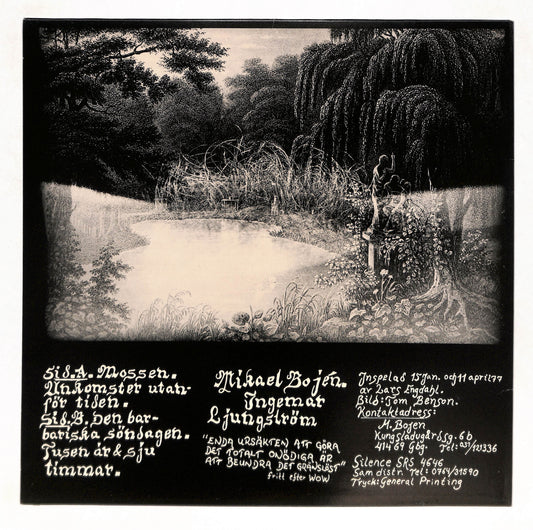 Sid.A. Mossen.
Ankomster utan-
för tiden.
Sid.B. Den bar-
bariska söndagen.
Tusen år & sju
timmar.
Mikael Bojén.
Ingemar
Ljungström
"ENDA URSÄKTEN ATT GÖRA
DET TOTALT ONÖDIGA ÄR
ATT BEUNDRA DET GRÄNSLÖST"
fritt efter WOW
Inspelad 15 Jan. och 11 april 77
av Lars Engdahl.
Bild: Tom Benson.
Kontaktadress:
M. Bojen
Kungsladugårdsg. 6 b
414 69 Gbg. Tel: 031/123336
Silence SRS 4646
Sam distr. Tel: 0764/31590
Tryck: General Printing